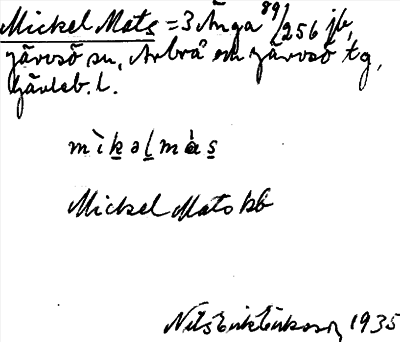 Mickel Mats = 3 Änga 89/256 jb,
Järvsö sn, Arbrå om Järvsö tg,
Gävleb. l.
mìkəlmàs
Mickel Mats kb
Nils Erik Eriksson 1935